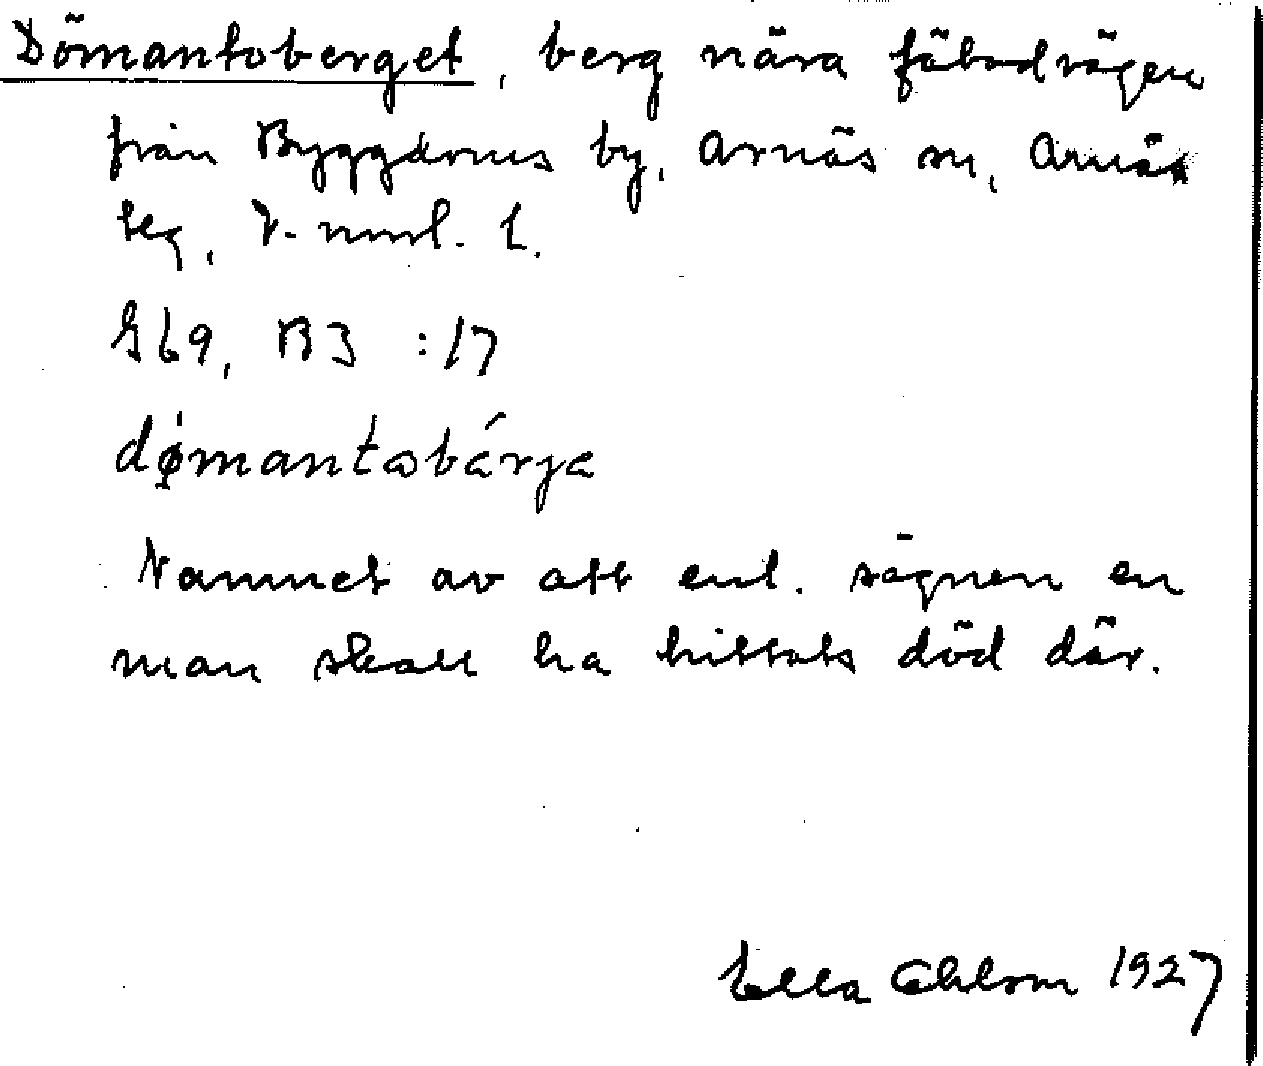 Dömantoberget, berg nära fäbodvägen
från Byggdarnes by, Arnäs sn, Arnäs
tlg, V-nrrl. l.
G69, B3 :17
dømantobärja
Namnet av att enl. sägnen en
man skall ha hittats död där.
Ella Ehlrom 1927